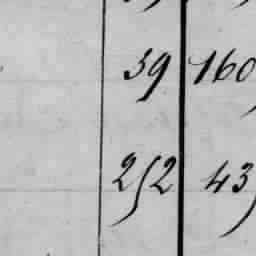 39 160
252 43